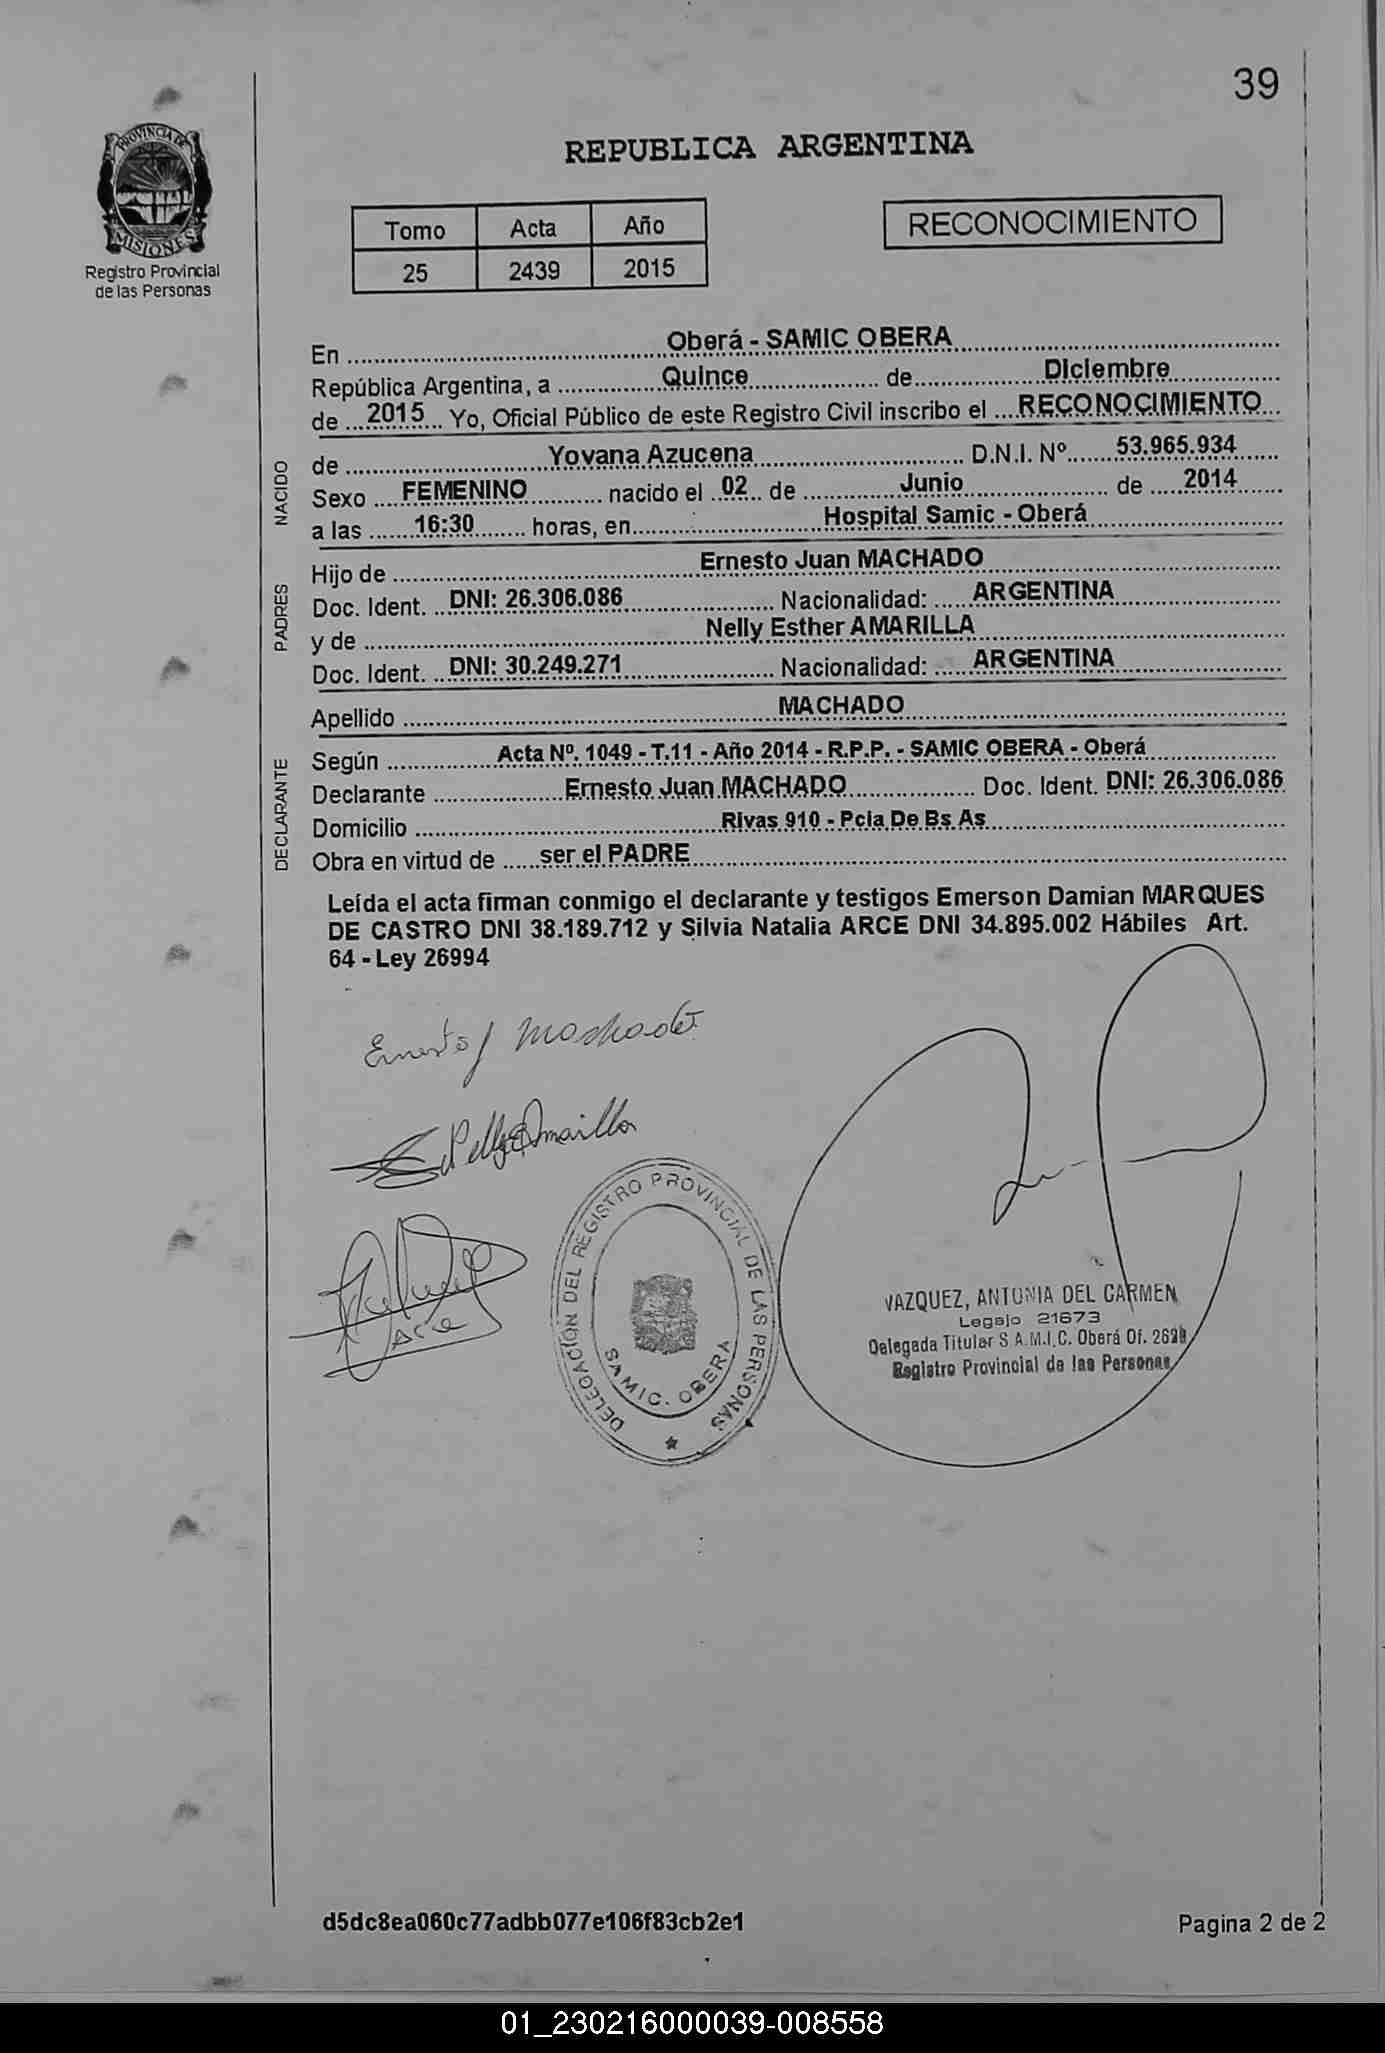 39
PROVINCIA DE
MISIONES
Registro Provincial
de las Personas
REPUBLICA ARGENTINA
Tomo Acta Año
25 2439 2015
RECONOCIMIENTO
En Oberá - SAMIC OBERA
República Argentina, a Quince de Diciembre
de 2015 Yo, Oficial Público de este Registro Civil inscribo el RECONOCIMIENTO
NACIDO
de Yovana Azucena D.N.I. Nº 53.965.934
Sexo FEMENINO nacido el 02 de Junio de 2014
a las 16:30 horas, en Hospital Samic - Oberá
PADRES
Hijo de Ernesto Juan MACHADO
Doc. Ident. DNI: 26.306.086 Nacionalidad: ARGENTINA
y de Nelly Esther AMARILLA
Doc. Ident. DNI: 30.249.271 Nacionalidad: ARGENTINA
Apellido MACHADO
DECLARANTE
Según Acta Nº. 1049 - T.11 - Año 2014 - R.P.P. - SAMIC OBERA - Oberá
Declarante Ernesto Juan MACHADO Doc. Ident. DNI: 26.306.086
Domicilio Rivas 910 - Pcia De Bs As
Obra en virtud de ser el PADRE
Leída el acta firman conmigo el declarante y testigos Emerson Damian MARQUES
DE CASTRO DNI 38.189.712 y Silvia Natalia ARCE DNI 34.895.002 Hábiles Art.
64 - Ley 26994
Ernesto J Machado
Nelly E Amarilla
Arce
DELEGACION DEL REGISTRO PROVINCIAL DE LAS PERSONAS
SAMIC. OBERA
VAZQUEZ, ANTONIA DEL CARMEN
Legajo 21673
Delegada Titular S.A.M.I.C. Oberá Of.
Registro Provincial de las Personas
d5dc8ea060c77adbb077e106f83cb2e1
Pagina 2 de 2
01_230216000039-008558